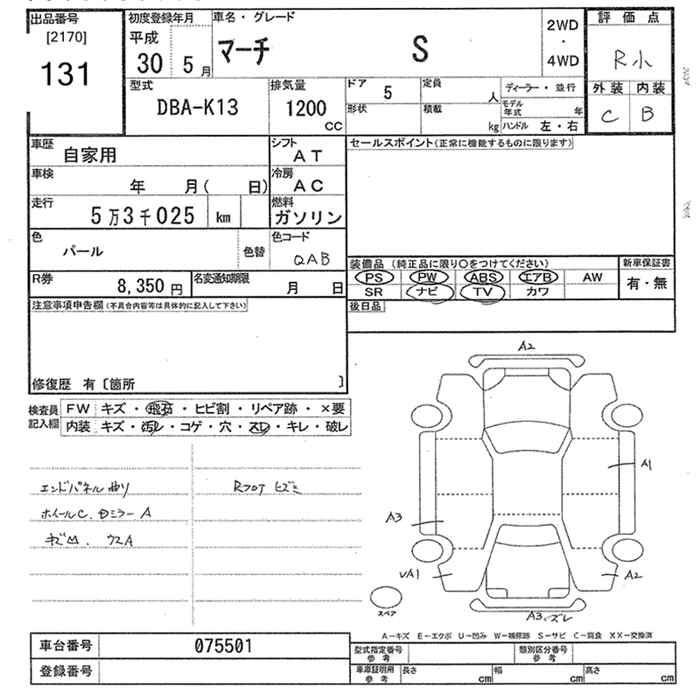 出品番号 初度登録年月 車名・グレード 評価点
[2170] 平成 マーチ S 2WD
131 30 5月 ・ 4WD R小
型式 排気量 ドア 5 定員 人 ディーラー・並行 外装 内装
DBA-K13 1200 cc 形状 積載 kg モデル年式 年 C B
ハンドル 左・右
車歴 自家用 シフト AT セールスポイント(正常に機能するものに限ります)
車検 年 月( 日) 冷房 AC
走行 5万3千025 km 燃料 ガソリン
色 パール 色替 色コード QAB
装備品(純正品に限り○をつけてください) 新車保証書
R券 8,350円 名変通知期限 月 日 PS PW ABS エアB AW 有・無
SR ナビ TV カワ
注意事項申告欄(不具合内容等は具体的に記入して下さい) 後日品
修復歴 有〔箇所 〕
検査員 FW キズ・飛石・ヒビ割・リペア跡・×要
記入欄 内装 キズ・汚レ・コゲ・穴・スレ・キレ・破レ
A2
エンドパネル曲リ Rフロア ヒズミ A1
ホイールC. Dミラー A A3
A2
スペア A3.ズレ
A－キズ E－エクボ U－凹み W－補修跡 S－サビ C－腐食 XX－交換済
車台番号 075501 型式指定番号 参考 類別区分番号 参考
登録番号 車庫証明用 参考 長さ cm 幅 cm 高さ cm